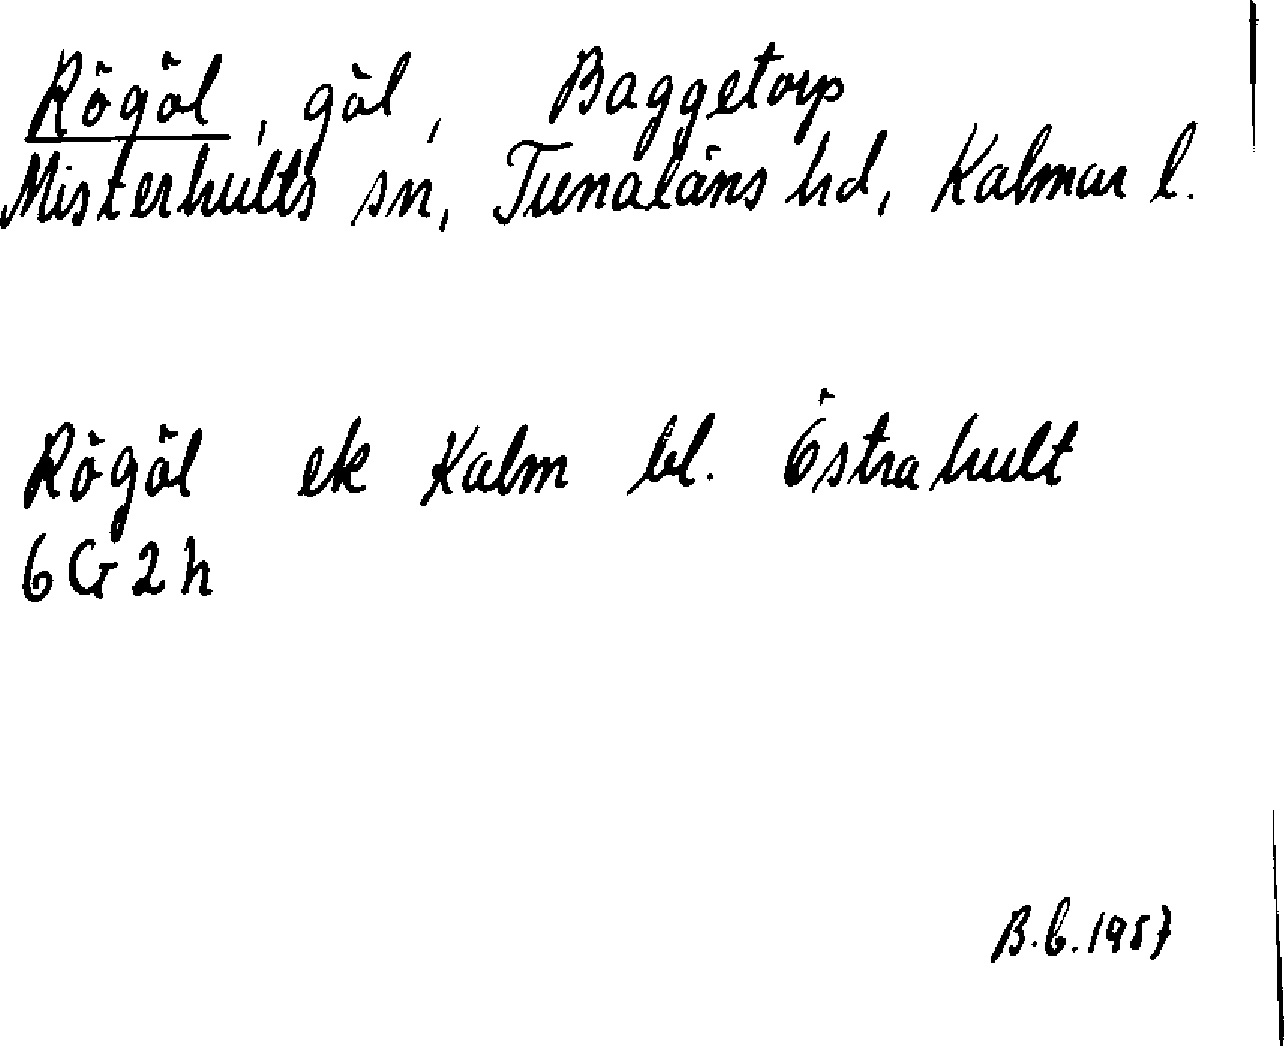 Rögöl, göl, Baggetorp
Misterhults sn, Tunaläns hd, Kalmar l.
Rögöl ek Kalm bl. Östrahult
6G2h
B.b.1957